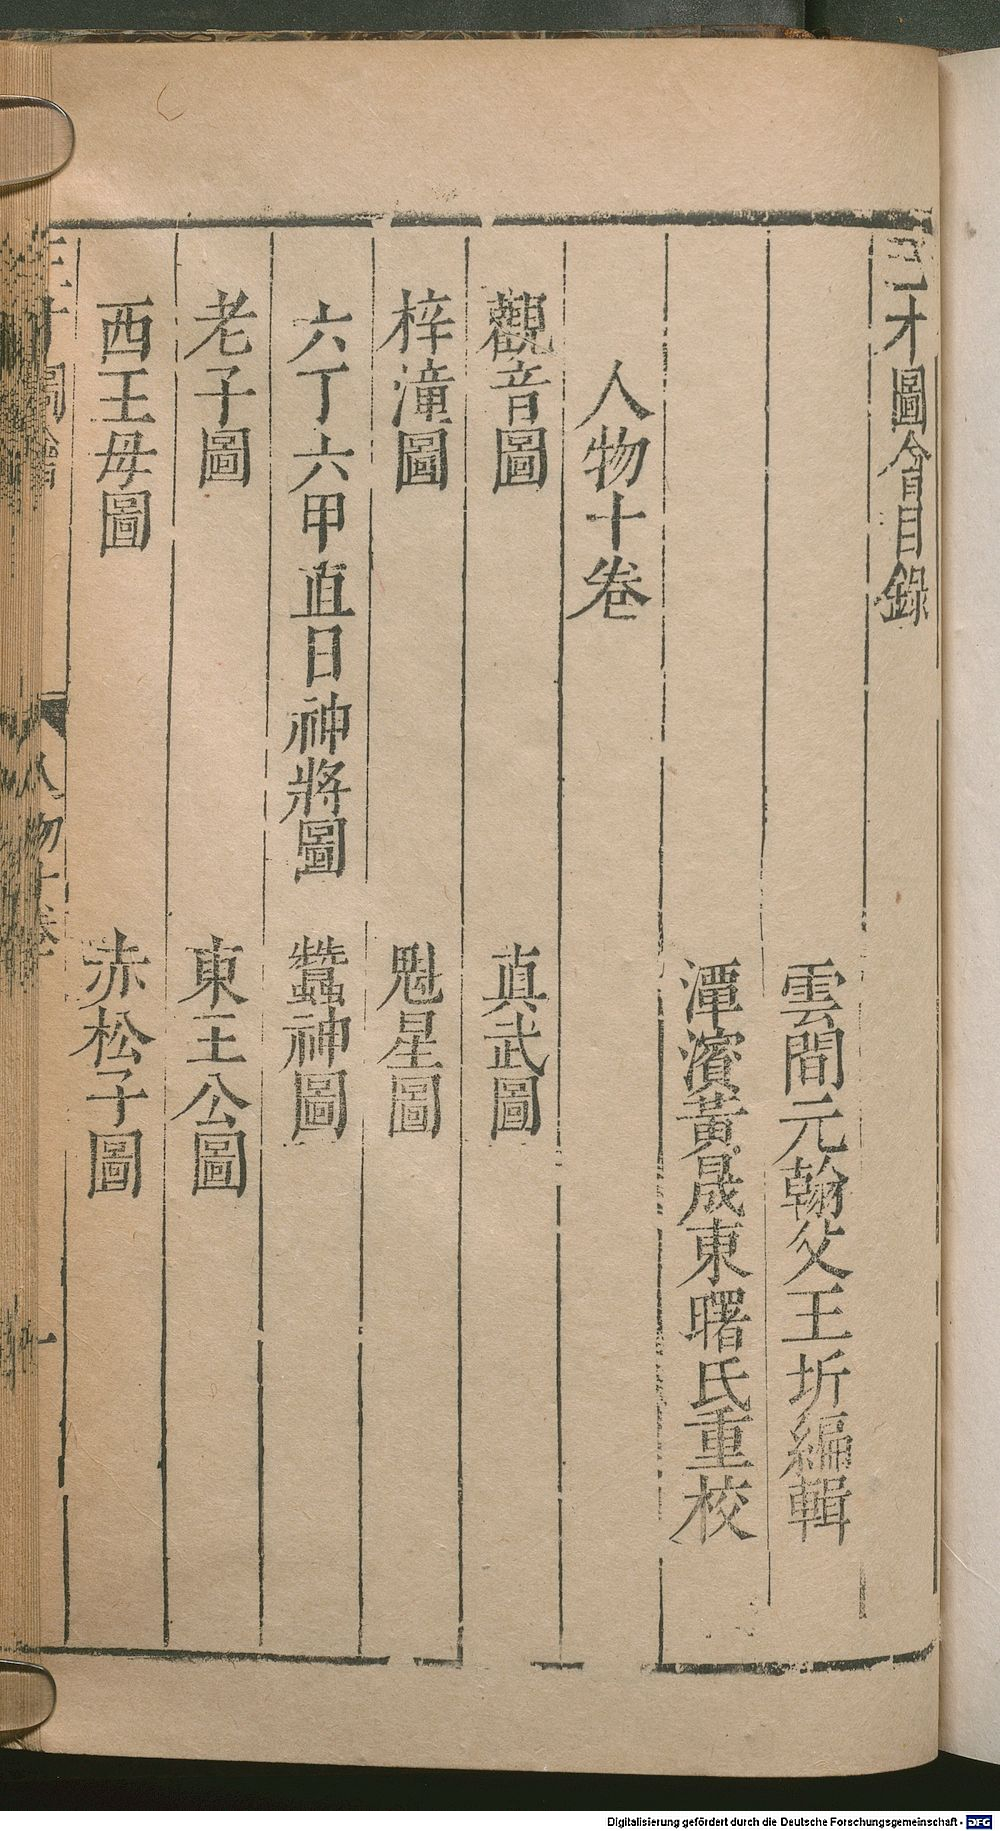 三才圖會目錄
雲間元翰父王圻編輯
潭濱黃晟東曙氏重校
人物十卷
觀音圖 真武圖
梓潼圖 魁星圖
六丁六甲直日神將圖 蠶神圖
老子圖 東王公圖
西王母圖 赤松子圖
三才圖會 人物十卷 一
Digitalisierung gefördert durch die Deutsche Forschungsgemeinschaft - DFG